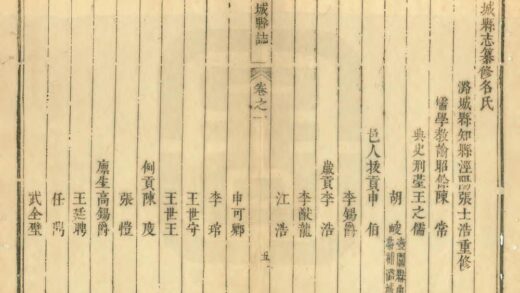 城縣志纂修名氏
潞城縣知縣涇陽張士浩重修
儒學教諭昭餘陳常
典史刑臺王之儒
胡峻
邑人拔貢申伯
李錫爵
歲貢李浩
李猷龍
江浩
城縣誌 卷之一 五
申可鄉
李琯
王世守
王世王
例貢陳度
張愷
廩生高錫爵
王廷聘
任
武全璧